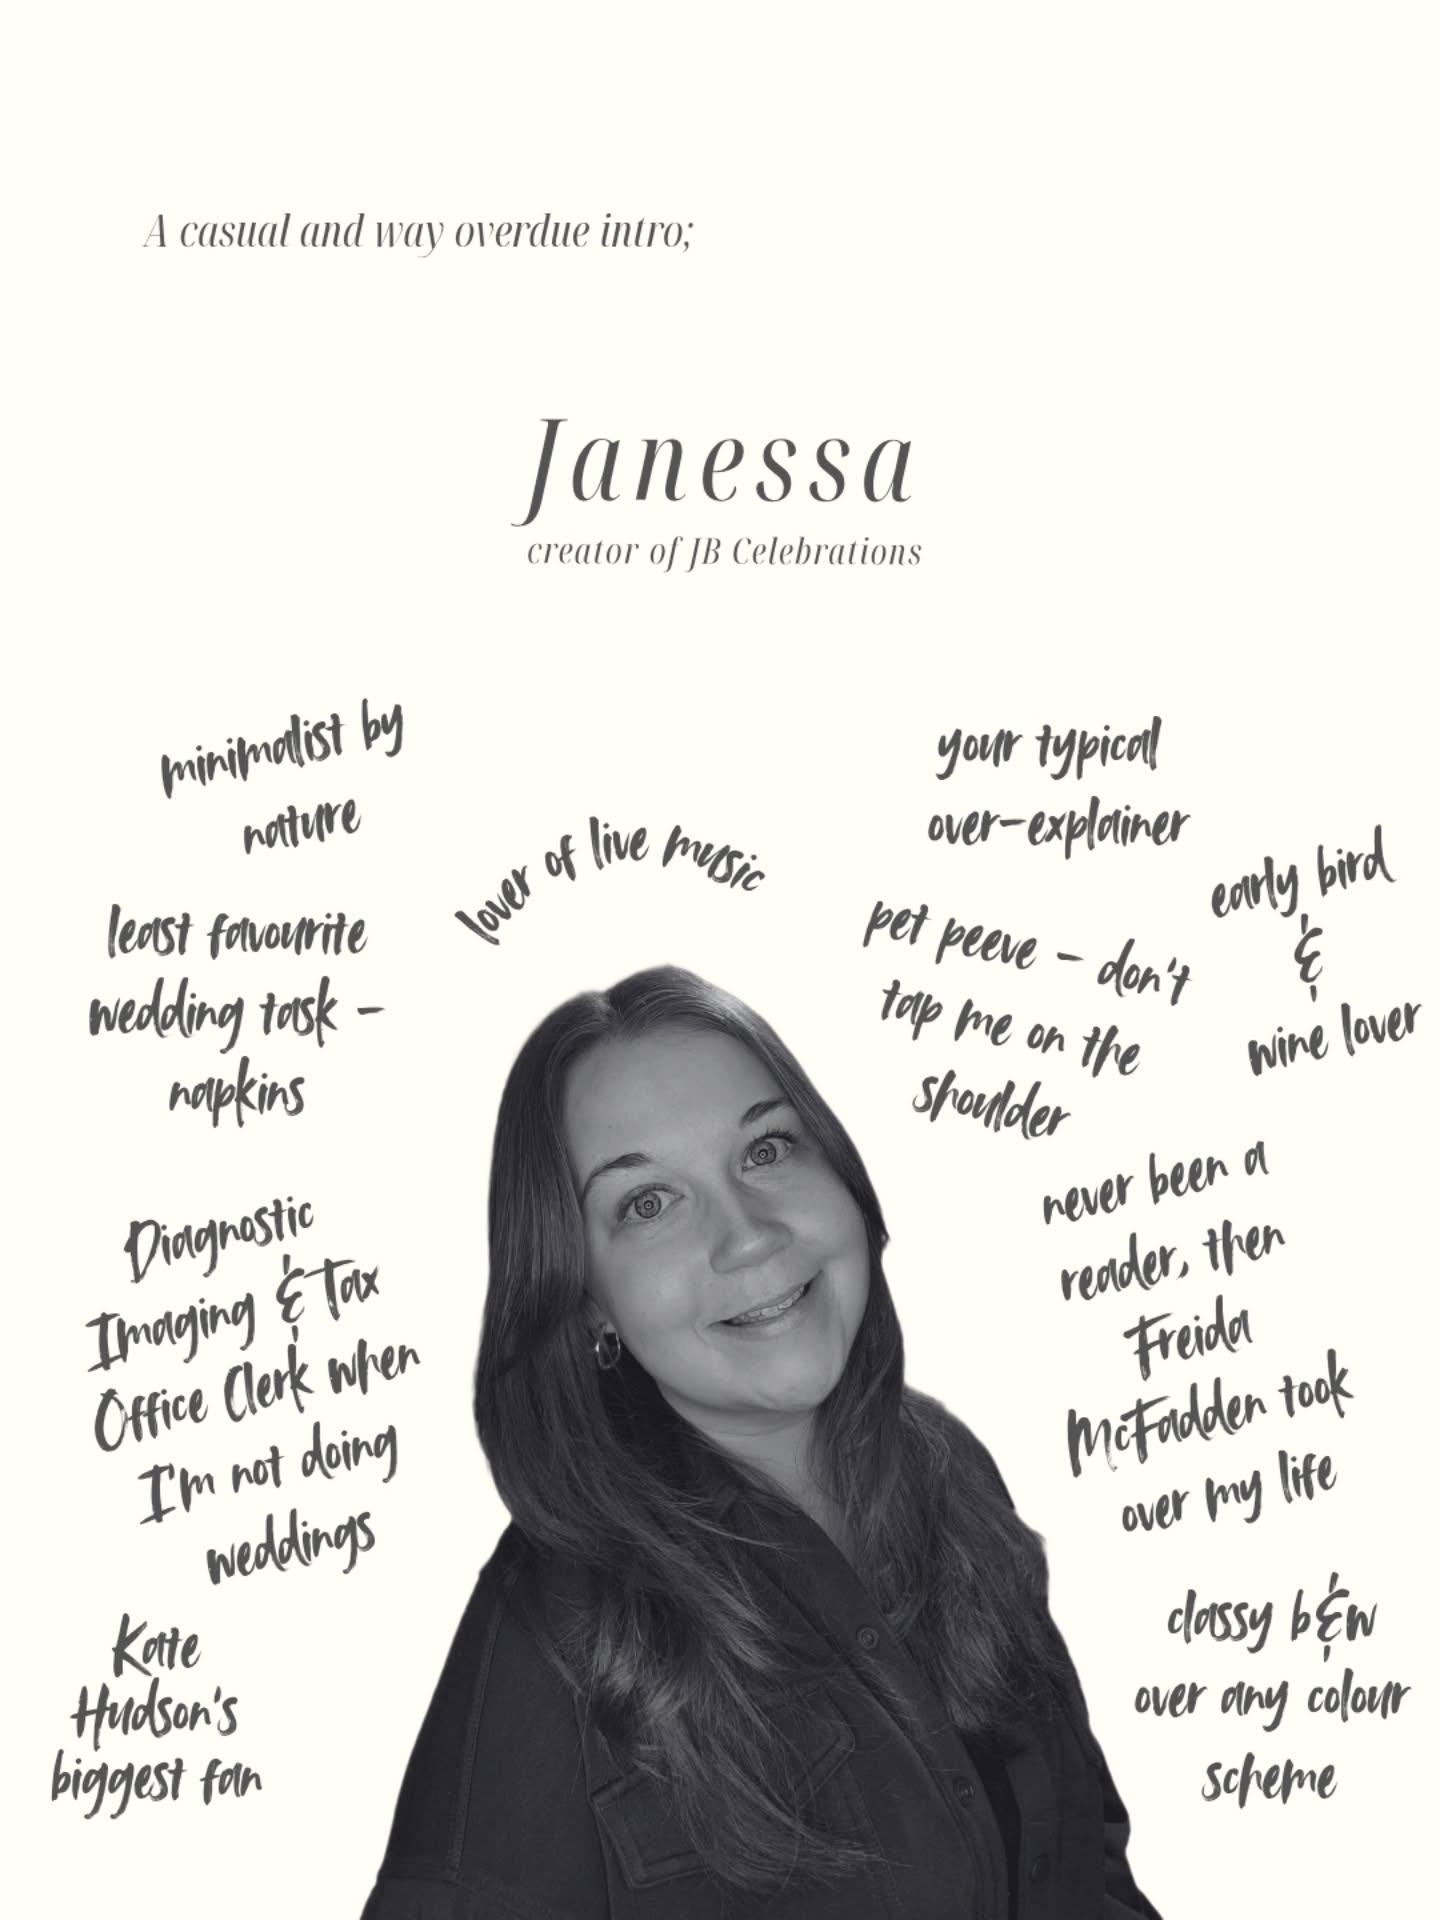 A casual and way overdue intro;
Janessa
creator of JB Celebrations
minimalist by
nature
least favourite
wedding task -
napkins
Diagnostic
Imaging & Tax
Office Clerk when
I'm not doing
weddings
Kate
Hudson's
biggest fan
lover of live music
your typical
over-explainer
pet peeve - don't
tap me on the
shoulder
early bird
&
wine lover
never been a
reader, then
Freida
McFadden took
over my life
classy b&w
over any colour
scheme